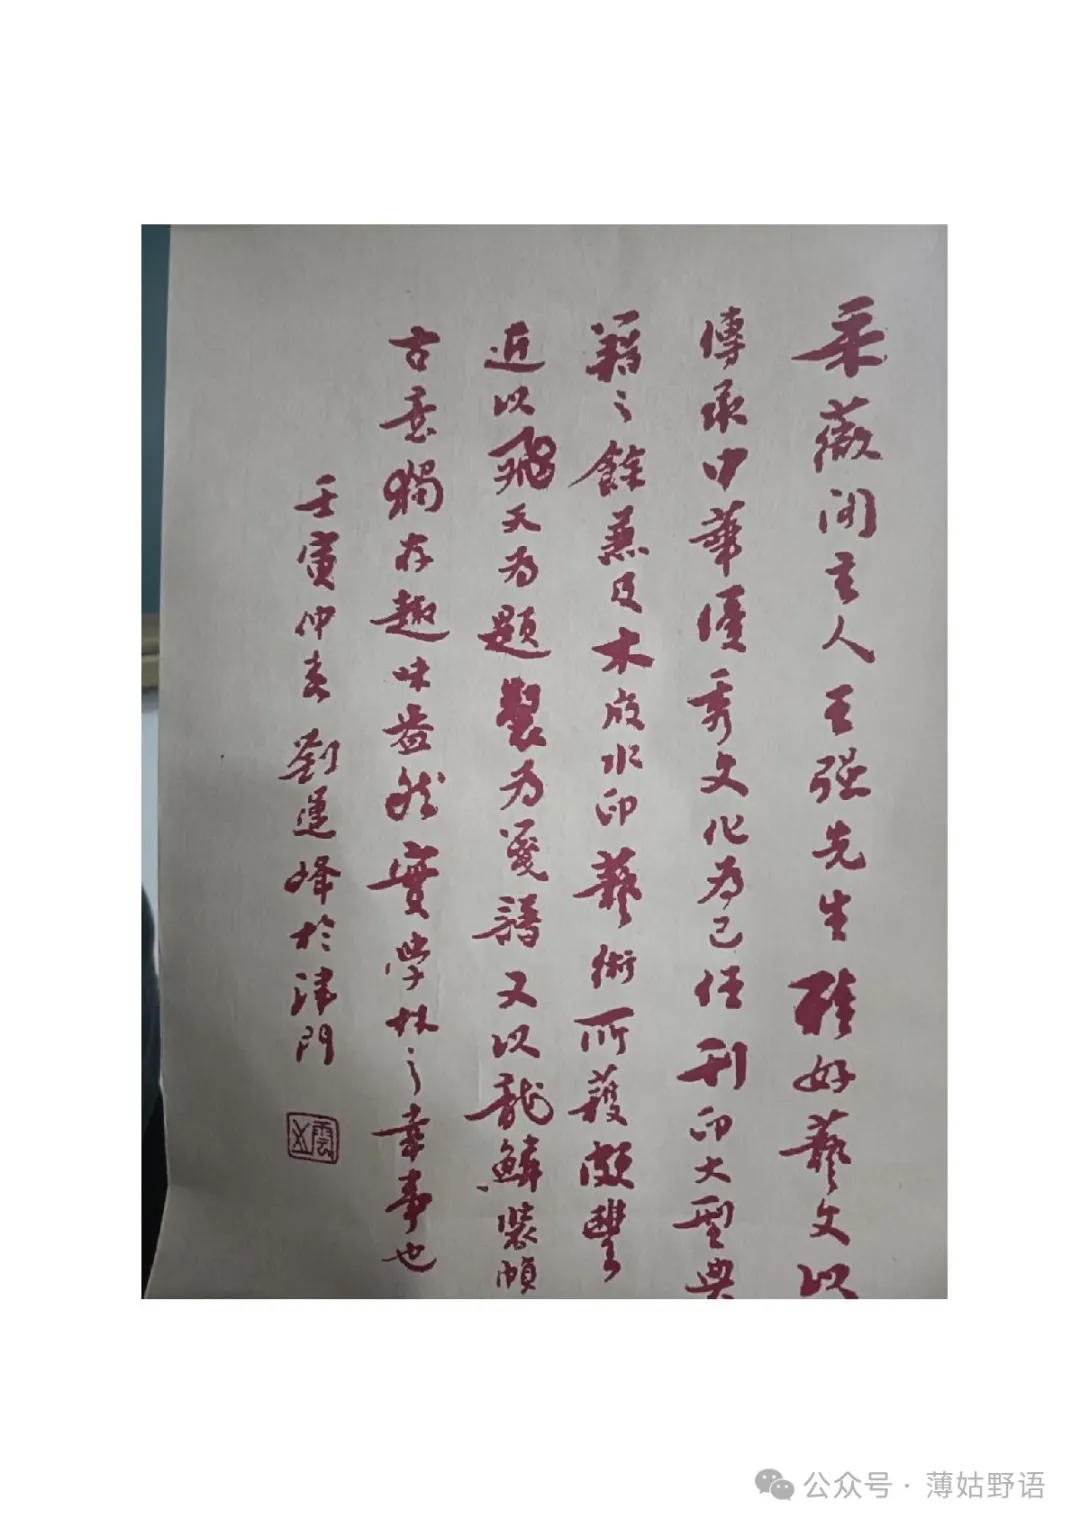 采薇阁主人王强先生雅好藝文以
傳承中華優秀文化為己任刊印大型典
籍之餘兼及木版水印藝術所獲頗豐
近以飛天為題製為箋譜又以龍鱗裝幀
古意獨存趣味盎然實學林之幸事也
壬寅仲春劉運峰於津門
公众号·薄姑野语